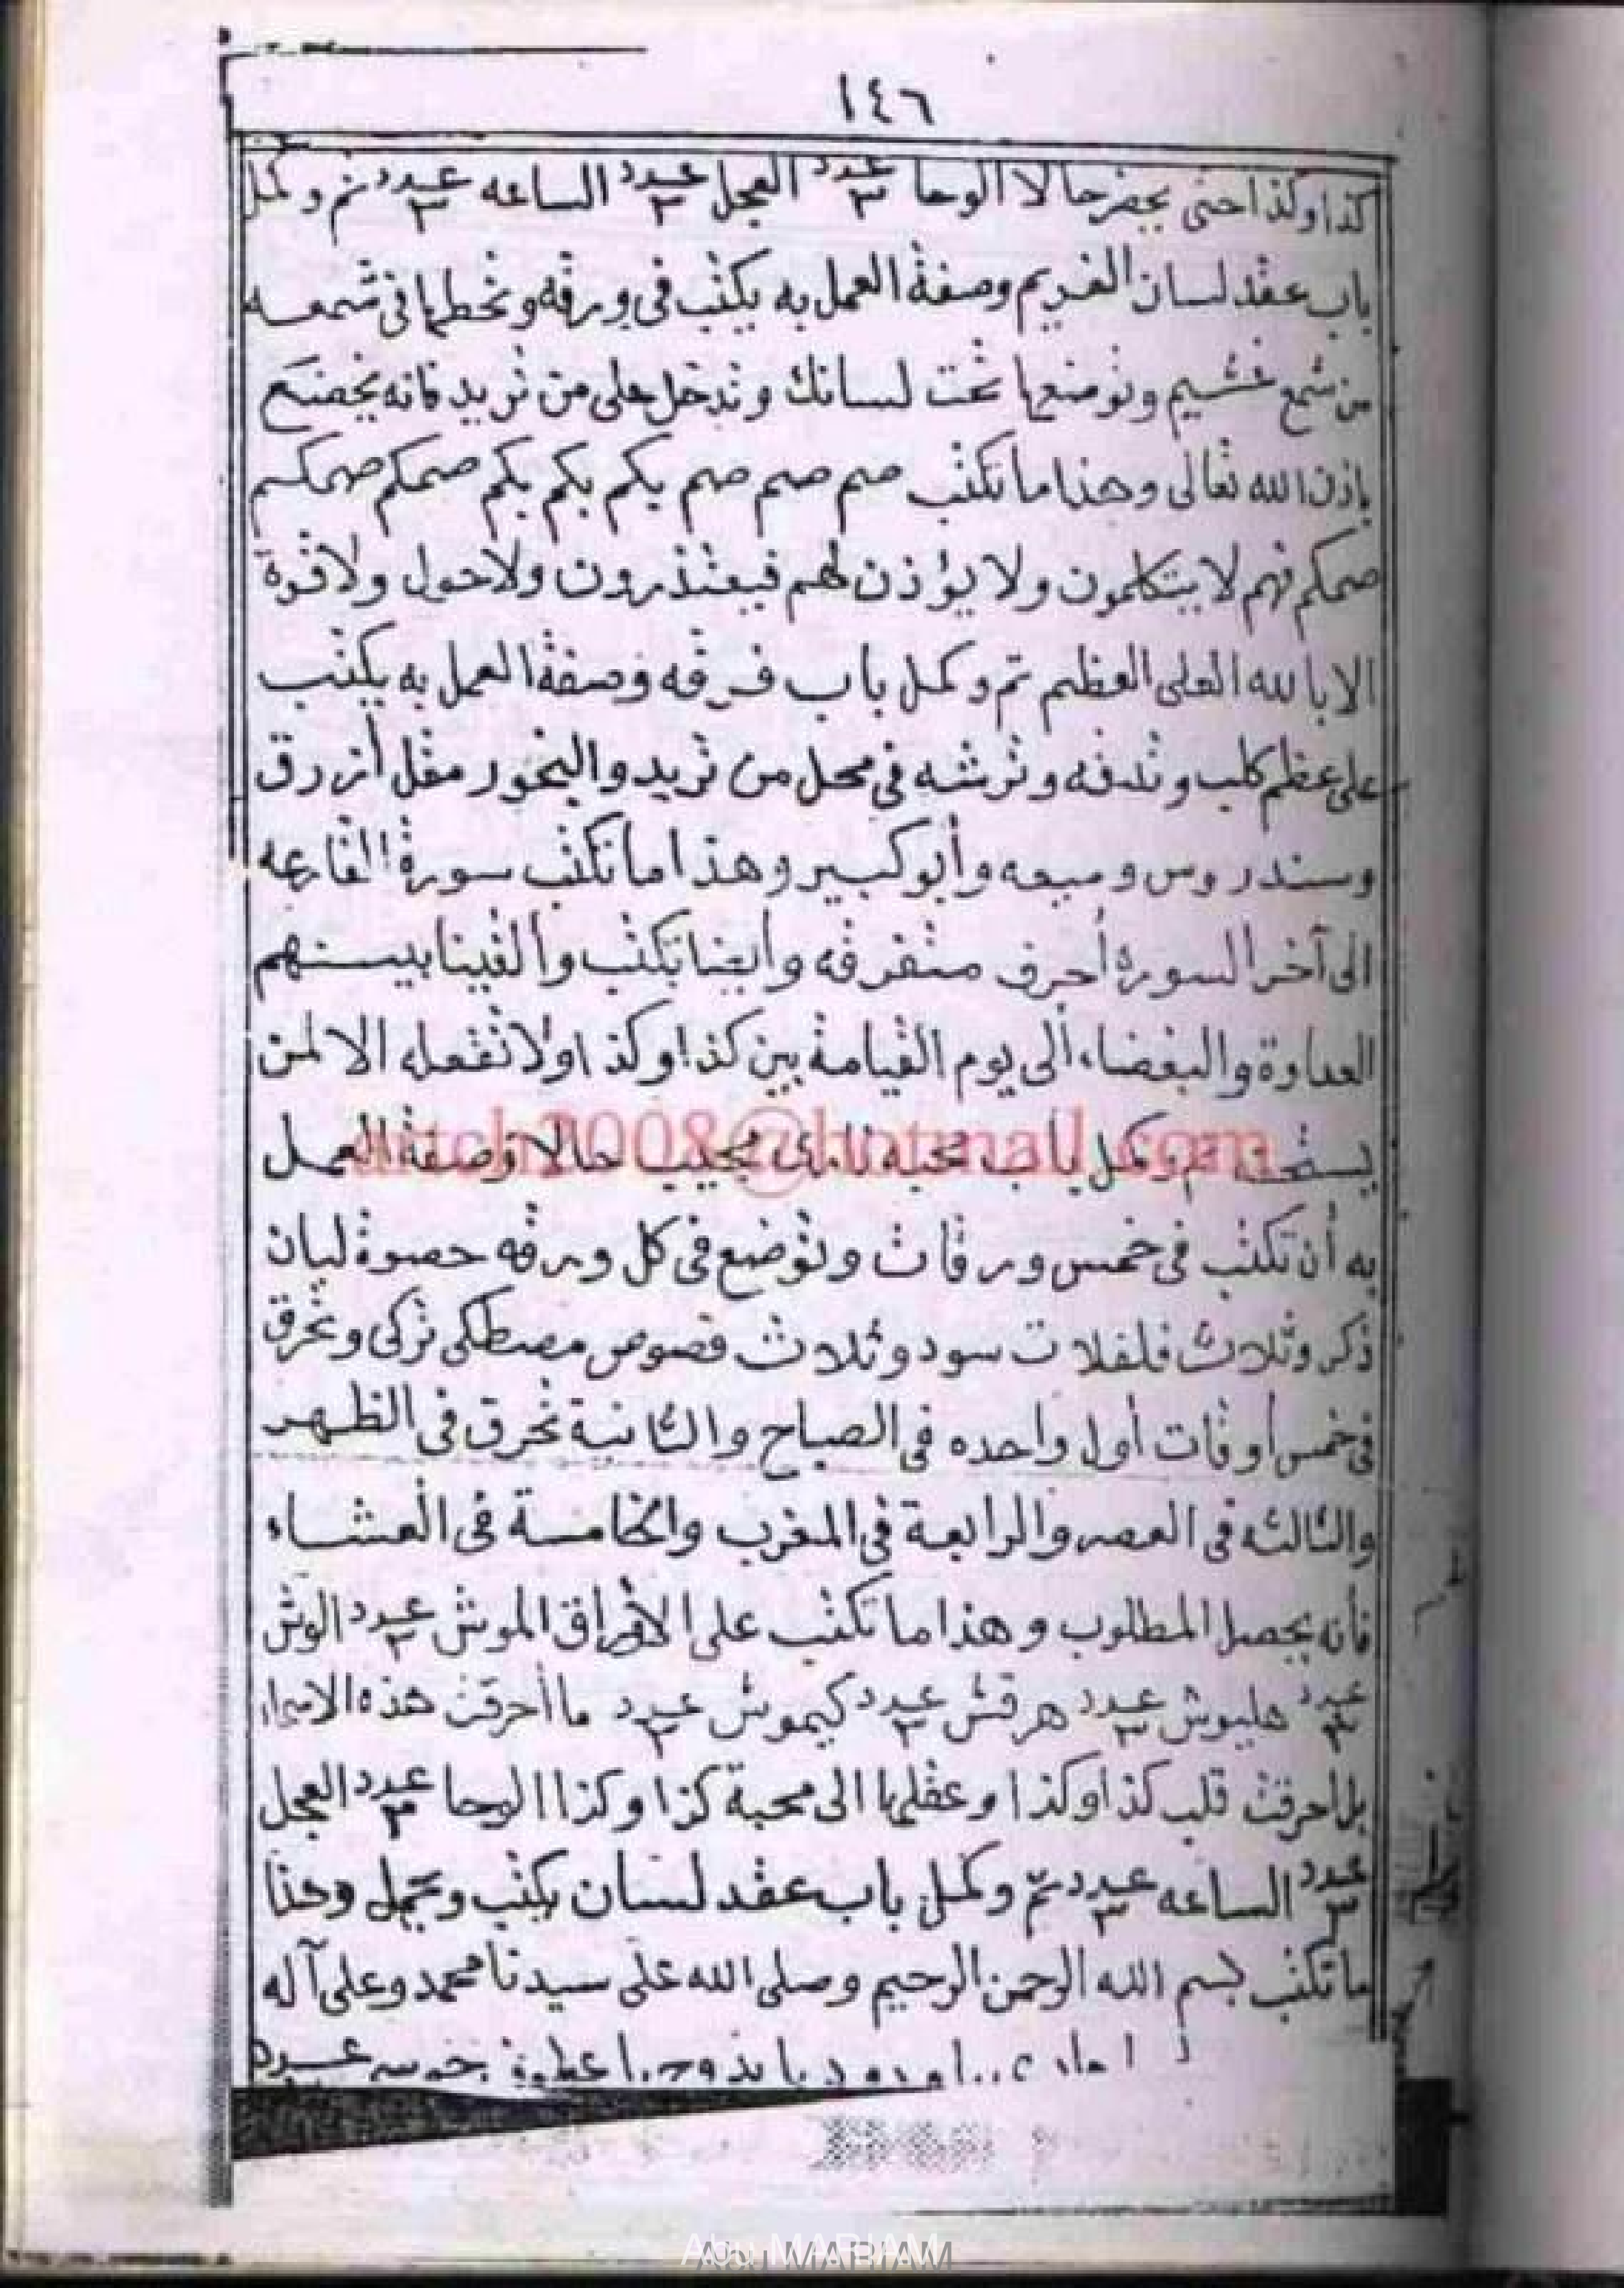 ١٤٦
كذا وكذا حتى يحضر حالا الوحا عدد ٣ العجل عدد ٣ الساعه عدد ٣ تم وكمل
باب عقد لسان الغريم وصفة العمل به يكتب فى ورقه وتحطها فى شمعه
من شمع غشيم وتوضعها تحت لسانك وتدخل على من تريد فانه يخضع
باذن الله تعالى وهذا ما تكتب صم صم صم صم بكم بكم بكم بكم صمكم صمكم
صمكم فهم لا يتكلمون ولا يؤذن لهم فيعتذرون ولا حول ولا قوة
الا بالله العلى العظيم تم وكمل باب فرقه وصفة العمل به يكتب
على عظم كلب وتدقه وترشه فى محل من تريد والبخور مقل أزرق
وسندروس وميعه وأبو كبير وهذا ما تكتب سورة القارعه
الى آخر السورة أحرف متفرقه وأيضا تكتب وألقينا بينهم
العداوة والبغضاء الى يوم القيامة بين كذا وكذا ولا تفعله الا لمن
يستحق تم وكمل باب محبه نارى مجيب حالا وصفة العمل
به أن تكتب فى خمس ورقات وتوضع فى كل ورقه حصوة لبان
ذكر وثلاث فلفلات سود وثلاث فصوص مصطكى تركى وتحرق
فى خمس أوقات أول واحده فى الصباح والثانية تحرق فى الظهر
والثالثه فى العصر والرابعة فى المغرب والخامسة فى العشاء
فأنه يحصل المطلوب وهذا ما تكتب على الأوراق الموش عدد ٣ الوش
عدد ٣ هليوش عدد ٣ هرقش عدد ٣ كيموش عدد ٣ ما أحرقت هذه الاسماء
بل احرقت قلب كذا وكذا وعقلها الى محبة كزا وكذا الوحا عدد ٣ العجل
عدد ٣ الساعه عدد ٣ تم وكمل باب عقد لسان يكتب ويحمل وهذا
ما تكتب بسم الله الرحمن الرحيم وصلى الله على سيدنا محمد وعلى آله
عدد
ditch2008@hotmail.com
Abu MARIAM